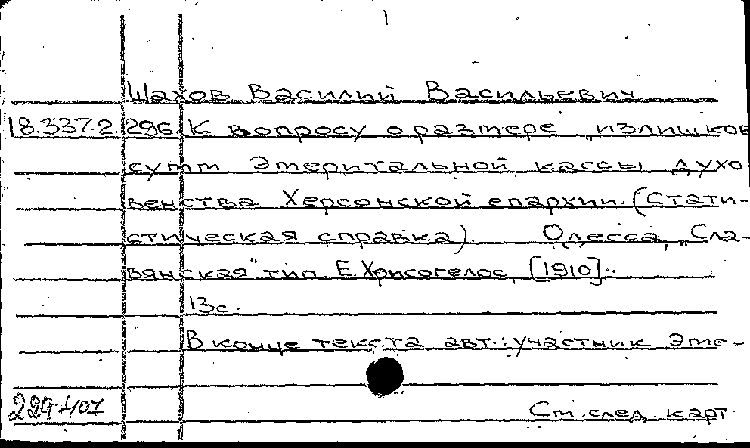 Шахов Василий Васильевич
18.337.2.286 К вопросу о размере „излишков
сумм Эмеритальной кассы духо
венства Херсонской епархии. (Стати-
стическая справка). Одесса, „Сла-
вянская" тип. Е. Хрисогелос, [1910].
13с.
В конце текста авт.: участник Эме-
229-407
См. след. карт.